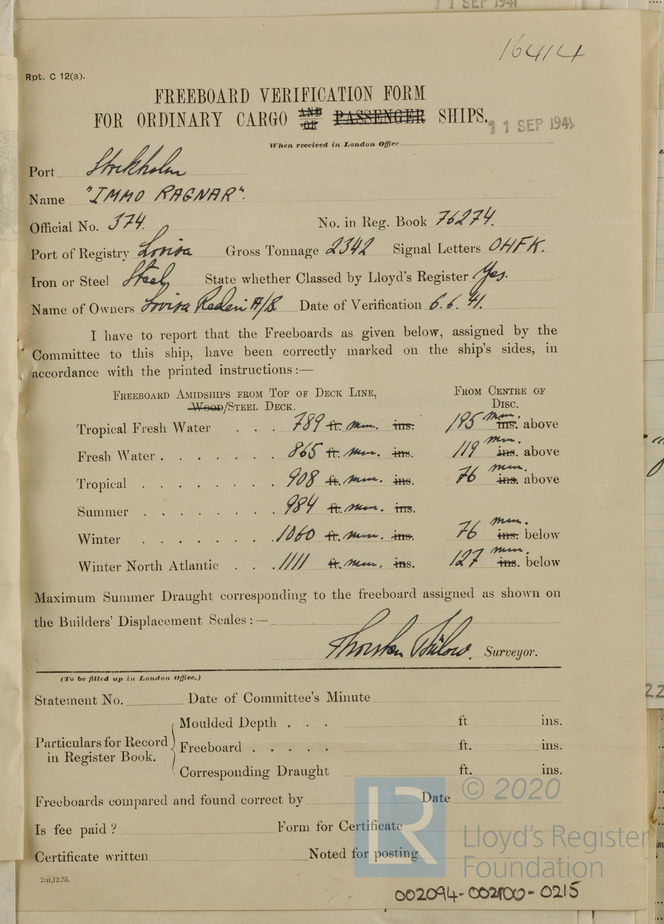 11 SEP 1941
16414
Rpt. C 12(a).
FREEBOARD VERIFICATION FORM
FOR ORDINARY CARGO AND OR PASSENGER SHIPS.
11 SEP 1941
When received in London Office
Port Stockholm
Name "IMMO RAGNAR".
Official No. 374. No. in Reg. Book 76274.
Port of Registry Lovisa Gross Tonnage 2342 Signal Letters OHFK.
Iron or Steel Steel State whether Classed by Lloyd's Register Yes.
Name of Owners Lovisa Rederi A/B Date of Verification 6.6.41.
I have to report that the Freeboards as given below, assigned by the
Committee to this ship, have been correctly marked on the ship's sides, in
accordance with the printed instructions:—
FREEBOARD AMIDSHIPS FROM TOP OF DECK LINE, FROM CENTRE OF
WOOD/STEEL DECK. DISC.
Tropical Fresh Water . . . 789 ft. mm. ins. 195 mm. ins. above
Fresh Water . . . . . . . 865 ft. mm. ins. 119 mm. ins. above
Tropical . . . . . . . . 908 ft. mm. ins. 76 mm. ins. above
Summer . . . . . . . . 984 ft. mm. ins.
Winter . . . . . . . . 1060 ft. mm. ins. 76 mm. ins. below
Winter North Atlantic . . . 1111 ft. mm. ins. 127 mm. ins. below
Maximum Summer Draught corresponding to the freeboard assigned as shown on
the Builders' Displacement Scales:—
Thorsten Bülow. Surveyor.
(To be filled up in London Office.)
Statement No. Date of Committee's Minute
Particulars for Record in Register Book.
Moulded Depth . . . ft. ins.
Freeboard . . . . . ft. ins.
Corresponding Draught ft. ins.
Freeboards compared and found correct by Date
Is fee paid? Form for Certificate
Certificate written Noted for posting
2m,12,35.
LR © 2020
Lloyd's Register
Foundation
002094-002100-0215